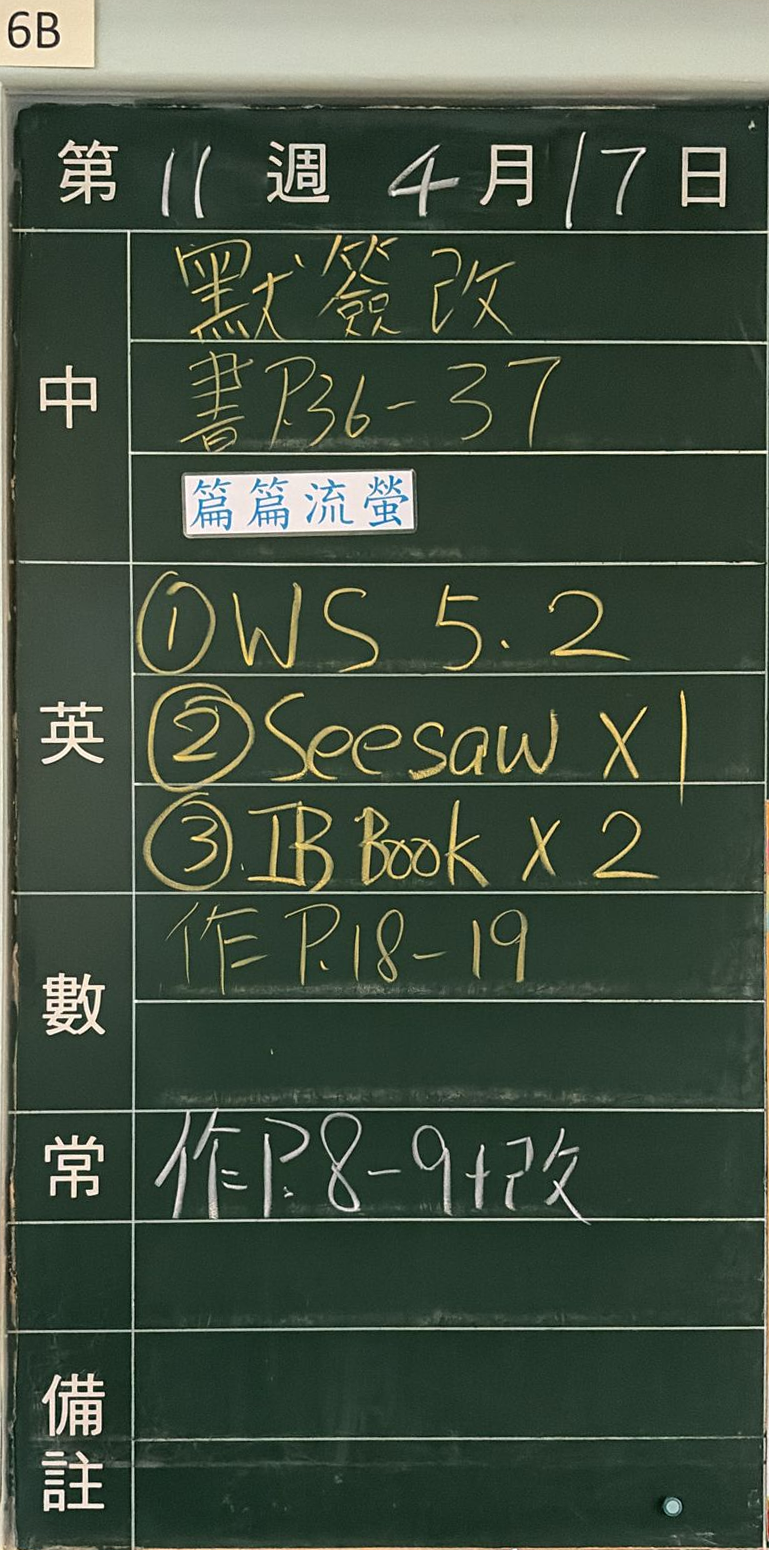 6B
第 11 週 4 月 17 日
中
默簽改
書P.36-37
篇篇流螢
英
① WS 5.2
② Seesaw x 1
③ IB Book x 2
數
作 P.18-19
常
作P.8-9+改
備註